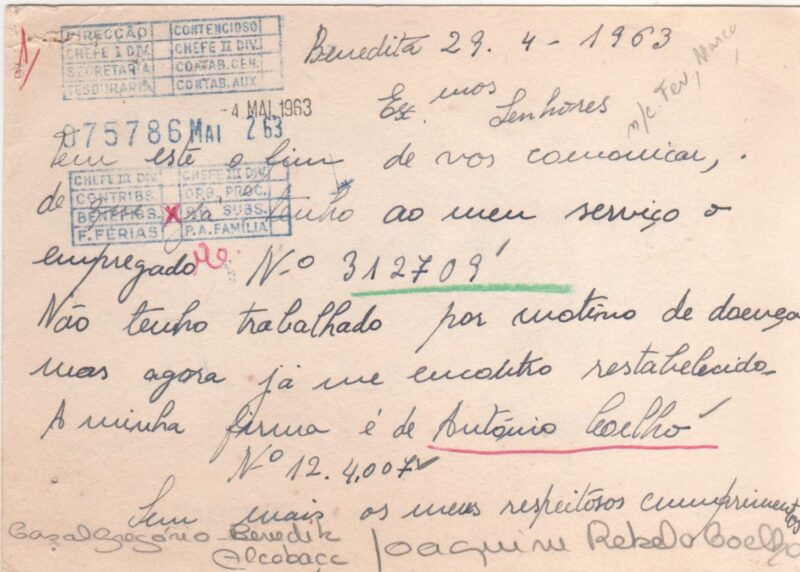 DIRECÇÃO CONTENCIOSO
CHEFE I DIV. CHEFE II DIV.
SECRETARIA CONTAB. CEN.
TESOURARIA CONTAB. AUX.
Benedita 29. 4 - 1963
n/c. Fev, Março
- 4 MAI. 1963
075786 MAI 2 63
Ex.mos Senhores
Tem este o fim de vos comonicar,
CHEFE II DIV. CHEFE III DIV.
CONTRIBS. ORG. PROC.
BENEFICS. X SUBS.
F. FÉRIAS P. A. FAMÍLIA
de que já tenho ao meu serviço o
empregado Nº 312709
Não tenho trabalhado por motivo de doença
mas agora já me encontro restabelecido.
A minha firma é de António Coelho
Nº 12.4.007
Sem mais os meus respeitosos cumprimentos
Casal Gregório - Benedita
Alcobaça
Joaquim Rebelo Coelho